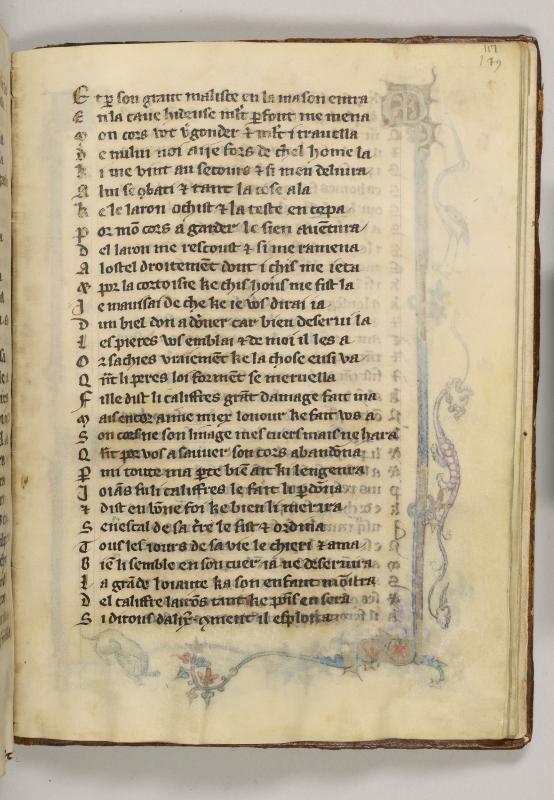 117
179
E t p̄ son grant maliste en la maison entra
E n la caue hideuse mlt̄ p̄font me mena
M on cors vot v̄gonder ⁊ mlt̄ i trauella
D e nului noi aije fors de chel home la
K i me vint au secours ⁊ si men deliura
A lui se 9bati ⁊ tant la cose ala
K e le laron ochist ⁊ la teste en copa
P or mō cors a garder le sien auētura
D el laron me rescoust ⁊ si me ramena
A lostel droitemēt dont i chis me ieta
⁊ por la cortoisie ke chis hons me fist la
J e mauisai de che ke ie vos dirai ia
D un biel don a dōner car bien deserui la
L es pieres vos emblai ⁊ de moi il les a
O r sachies vraiement ke la chose ensi va
Q n̄t li peres loi forment se meruella
F ille dist li califfres grāt damage fait ma
M ais encor aime miex lonour ke fait vos a
S on cors ne son linage mes cuers mais ne hara
Q n̄t por vos a sauuer son cors abandōna
P mi toute ma p̄te biē ait ki lengenra
J oians fu li califfres le fait li p̄dōna
⁊ dist en bōne foi ke bien li merira
S enescal de sa t̄re le fist ⁊ ordena
T ous les iours de sa vie le chieri ⁊ ama
B iē li semble en son cuer ia ne deseruira
L a grāde loiante ka son enfant mōstra
D el califfre lairōs tant ke poīs en sera
S i dirons dalix̄ 9ment il esploita